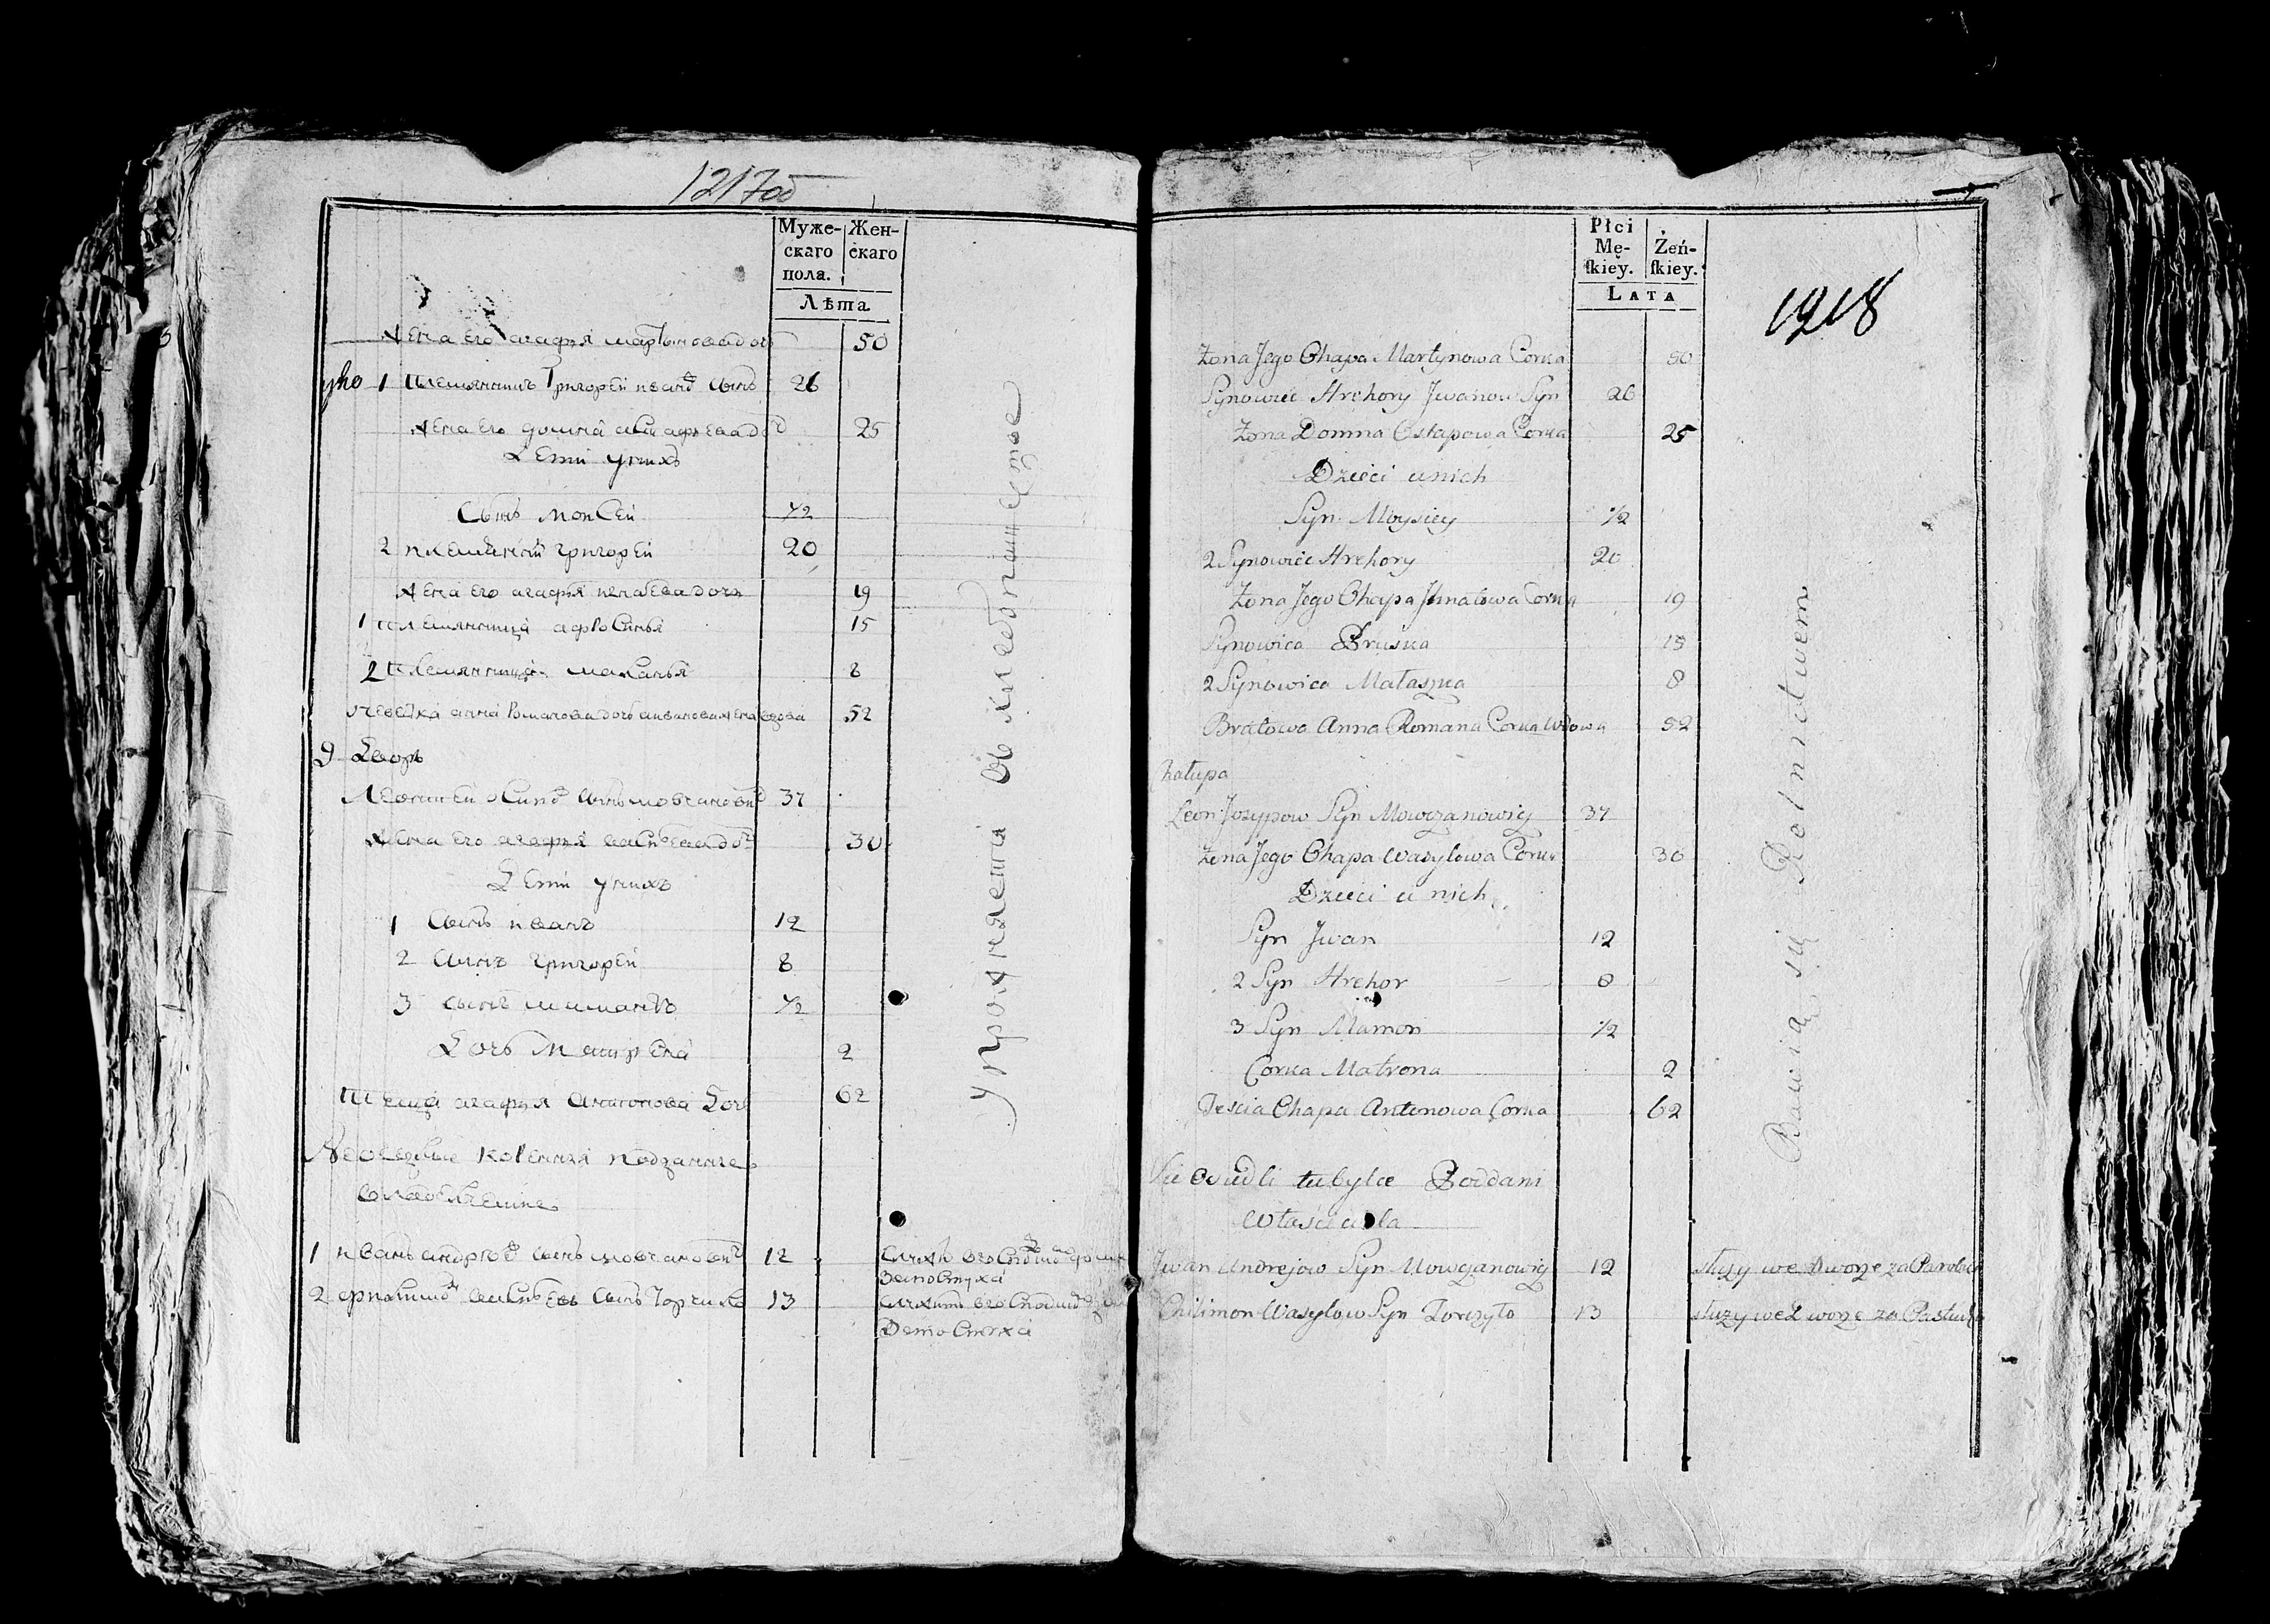 1217об
Муже-
скаго
пола.
Жен-
скаго
Лѣта
Жена его агафья мартынова доч 50
1 племянникъ Григорей иванов сынъ 26
Жена его домна астафьева доч 25
Дети у нихъ
Сынъ моисей 1/2
2 племянник григорей 20
Жена его агафья игнатева доч 19
1 племянница афросинья 15
2 племянница маланья 8
невестка анна романова дочь иванова жена вдова 52
9 Дворъ
Леонтей осипов сынъ мовчанович 37
Жена его агафья васильева доч 30
Дети у нихъ
1 Сынъ иванъ 12
2 Сынъ григорей 8
3 сынъ мамантъ 1/2
Дочь матрена 2
теща агафья антонова доч 62
Неоседлые коренныя подданные
владельческие
1 иванъ андреев сынъ мовчанович 12
2 филимон васильевъ сынъ Торчило 13
упражняется въ хлебопашестве
Płci
Mę-
skiey.
Żeń-
skiey.
LATA
1218
Zona Jego Ohapa Martynowa Corka 50
Synowiec Hrehory Jwanow Syn 26
Zona Domna Ostapowa Corka 25
Dzieci u nich
Syn Moysiey 1/2
2 Synowiec Hrehory 20
Zona Jego Ohapa Jhnatowa Corka 19
Synowica Pruska 15
2 Synowica Małaszka 8
Bratowa Anna Romana Corka Wdowa 52
Chałupa
Leon Jozypow Syn Mowczanowicz 37
Zona Jego Ohapa Wasylowa Corka 30
Dzieci u nich
Syn Jwan 12
2 Syn Hrehor 8
3 Syn Mamon 1/2
Corka Matrona 2
Tescia Ohapa Antonowa Corka 62
Nie osiedli tubylce Poddani
Własciciela
Jwan Andrejow Syn Mowczanowicz 12 słuzy we Dworze za Parobka
Chilimon Wasylow Syn Torczyło 13 słuzy we Dworze za Pastucha
Bawią się Rolnictwem